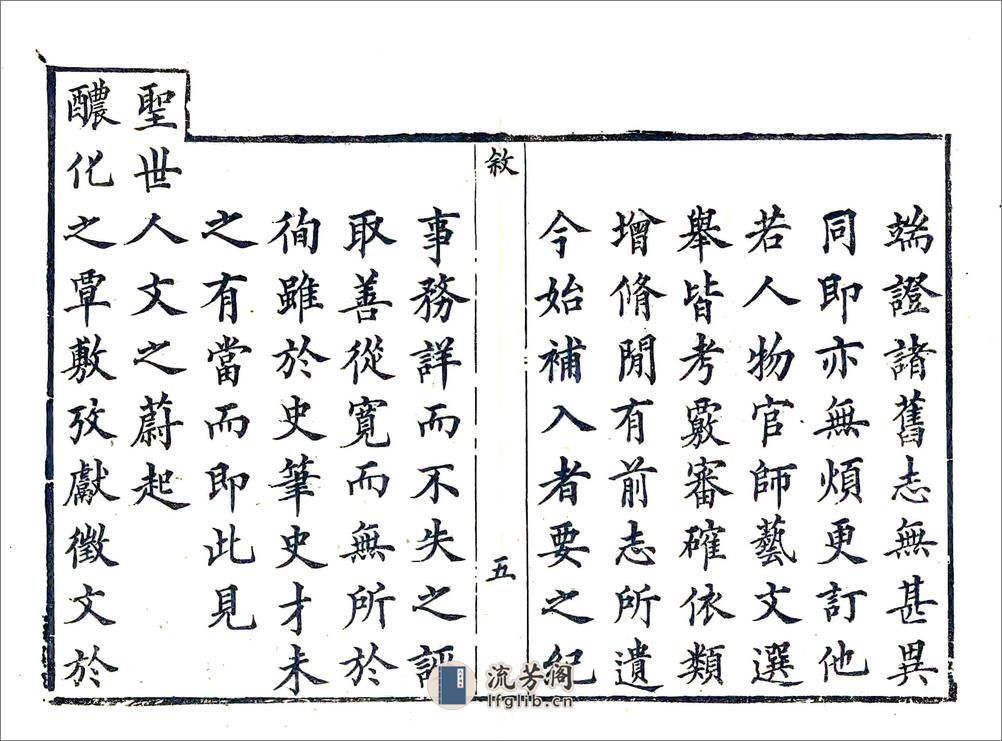 端證諸舊志無甚異
同即亦無煩更訂他
若人物官師藝文選
舉皆考覈審確依類
增脩閒有前志所遺
今始補入者要之紀
敘
五
事務詳而不失之誣
取善從寬而無所於
徇雖於史筆史才未
之有當而即此見
聖世人文之蔚起
醲化之覃敷攷獻徵文於
流芳阁
lfglib.cn